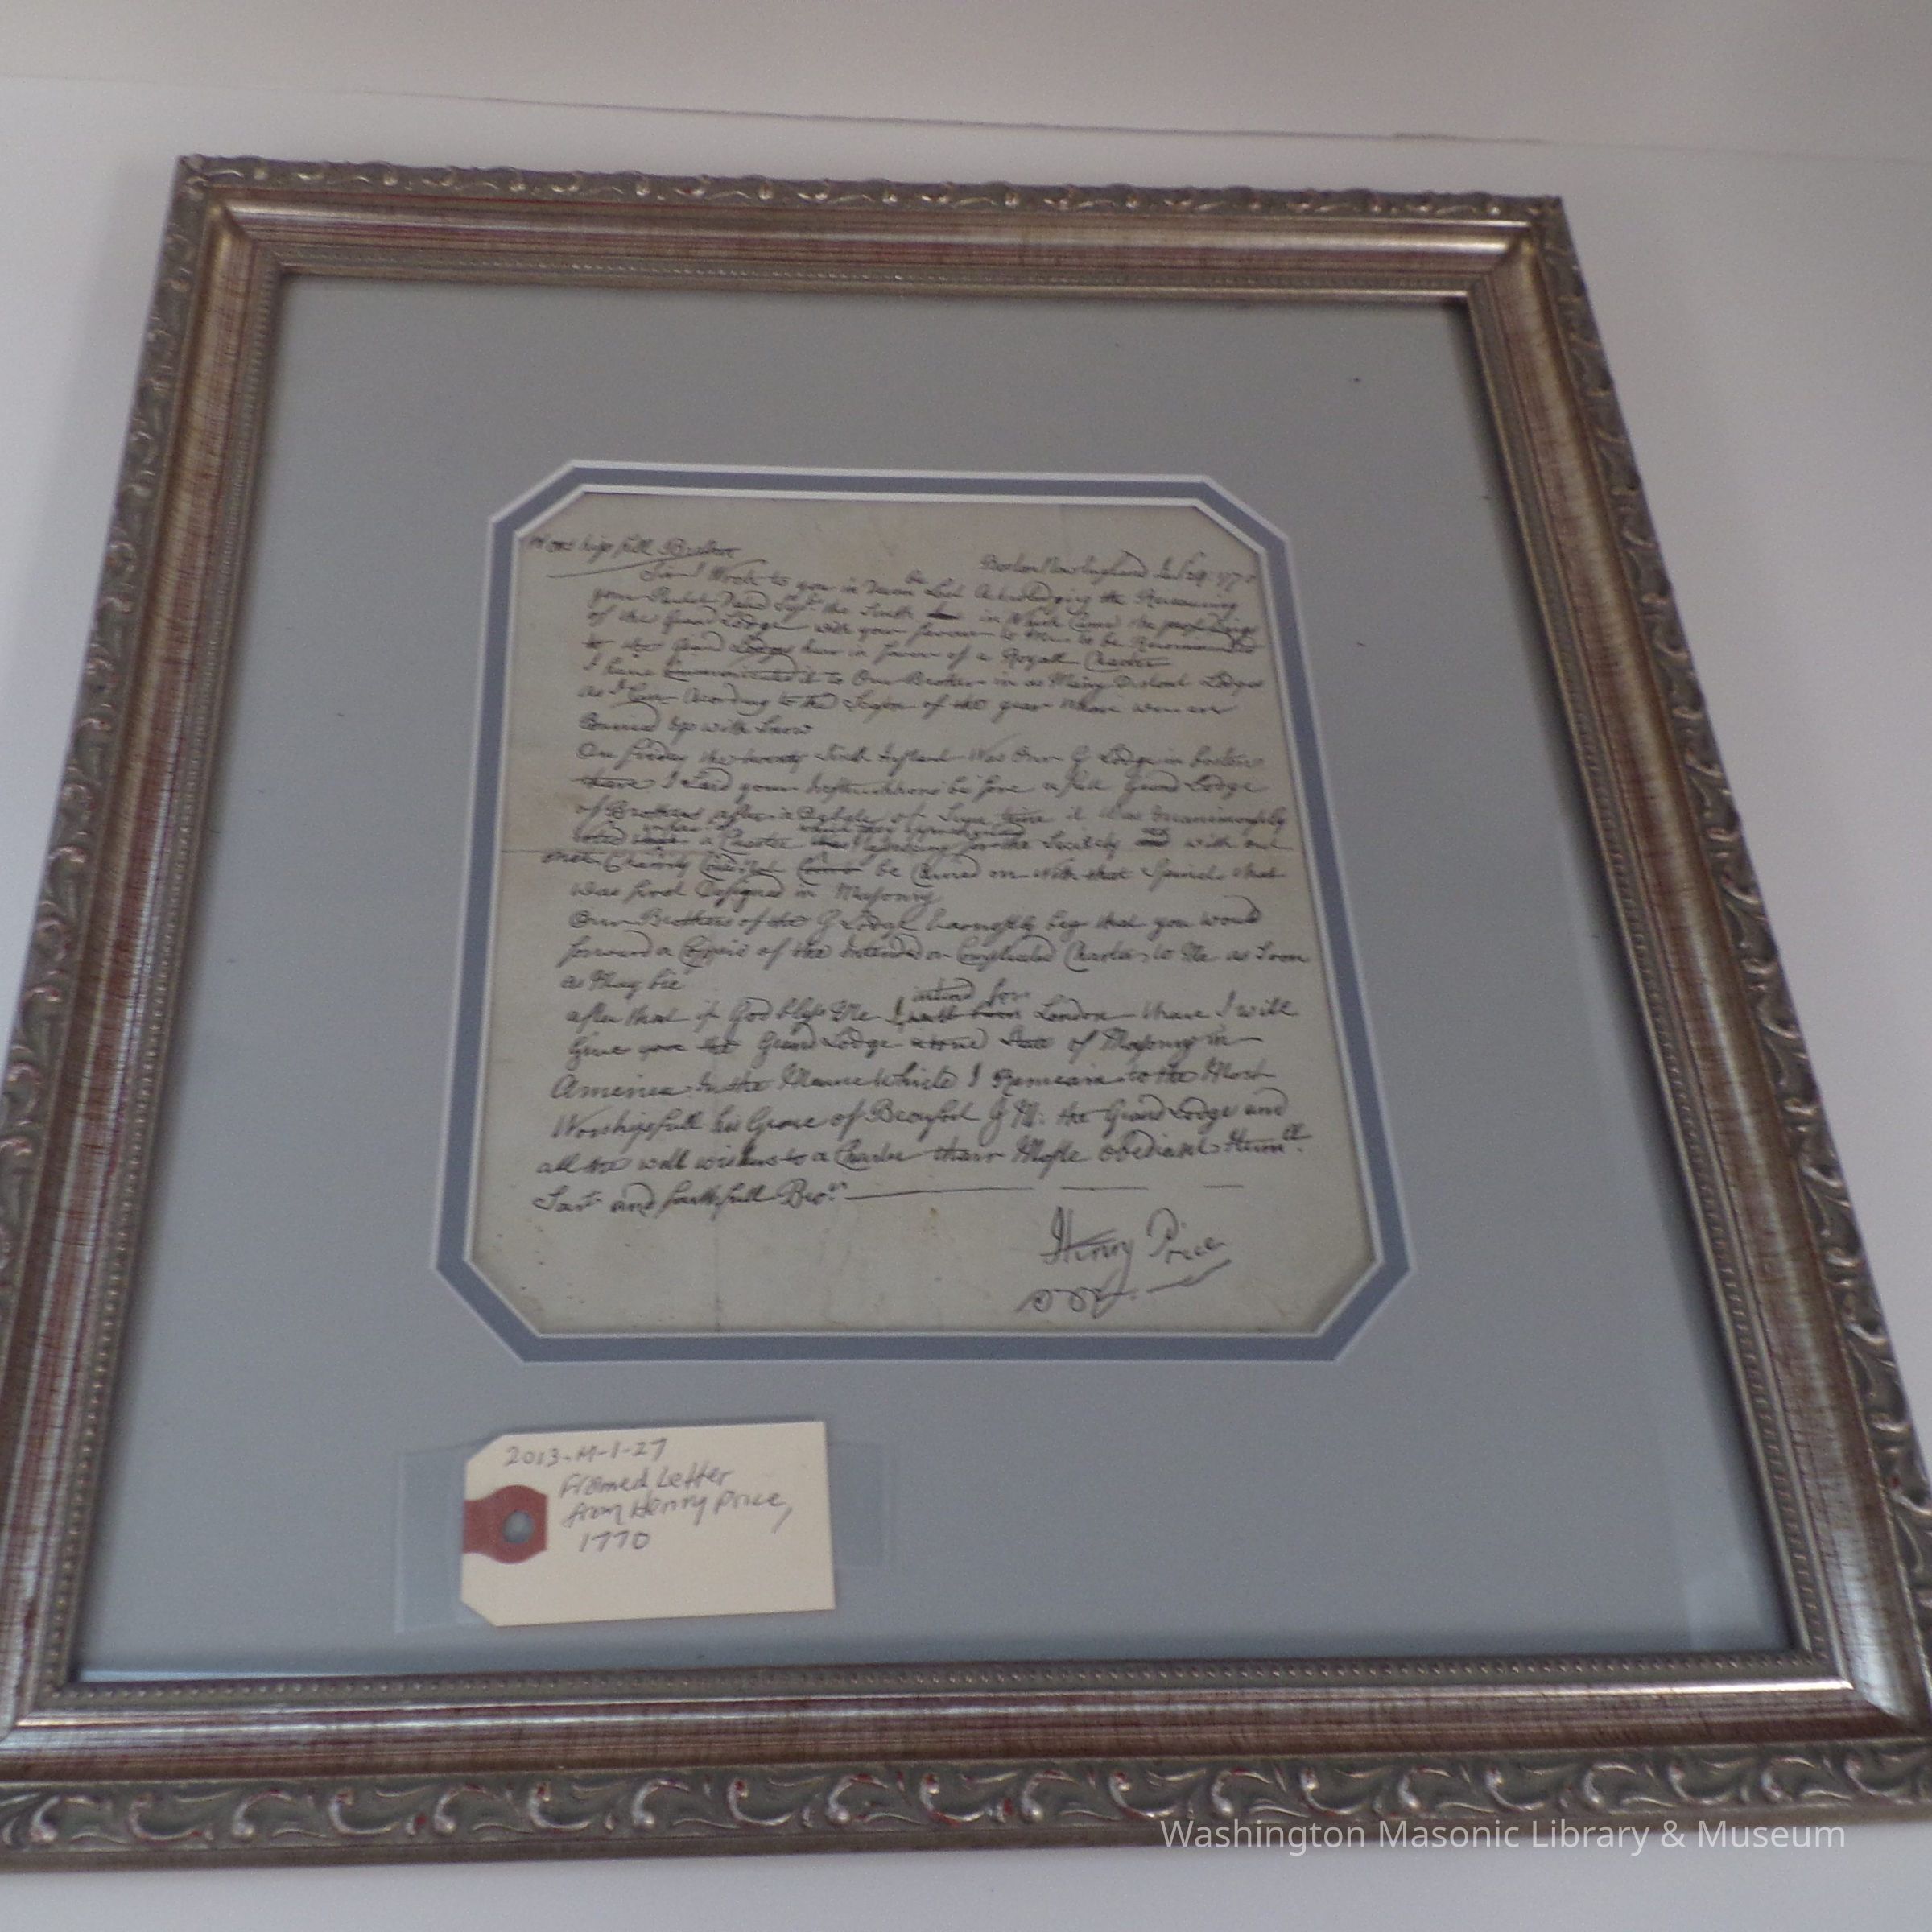 Worshipfull Brother
Boston New England Jan 29: 177
Sir I Wrote to you in Decm be Last Acknoledging the Receiveing
your Packet Dated Sepr the Tenth in Which Came the
of the Grand Lodge with your favour to Me to be Recommended
to the Grand Lodge hear in favor of a Royall Charter
I have Communicated it to Our Brother in as Many Distant Lodges
as I Can Acording to the Season of the year Whare wee are
up with Snow
On friday the twenty Sixth Instant Was Our G Lodge in boston
thare I Laid your Instructions be fore a full Grand Lodge
of Brothers after a Debate of Sum time it Was Unanimously
voted a Charter for the Society and with out
Charity be Carried on With that Spirit that
was first Designed in Masonry
Our Brothers of the G Lodge Earnestly beg that you would
forward a Coppie of the Intended or Compleated Charter to Me as Soon
as May bee
intend for
after that if God bless Me I London thare I will
Give you the Grand Lodge State of Masonry in
America. In the Meane While I Remain to the Most
Worshipfull his Grace of Beauford G M: the Grand Lodge and
all the well wishers to a Charter thair Moste obediant Humll
Sart and faithfull Bror
Henry Price
2013-M-1-27
Framed Letter
from Henry Price,
1770
Washington Masonic Library & Museum